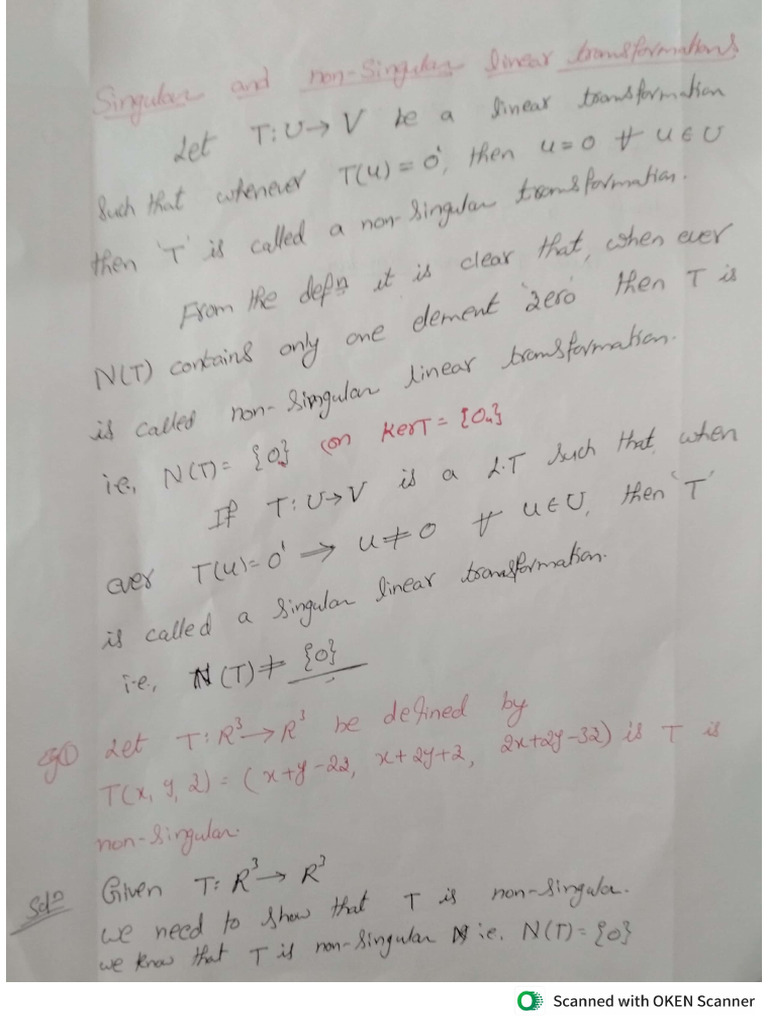 Singular and non-Singular linear transformations
Let T: U → V be a linear transformation
Such that whenever T(u) = 0', then u = 0 ∀ u ∈ U
then 'T' is called a non-Singular transformation.
From the defn it is clear that, when ever
N(T) contains only one element 'zero' then T is
is called non-Singular linear transformation.
i.e, N(T) = {0} (or) KerT = {0u}
If T: U → V is a L.T Such that, when
ever T(u) = 0' ⇒ u ≠ 0 ∀ u ∈ U, then 'T'
is called a Singular linear transformation.
i.e., N(T) ≠ {0}
eg① Let T: R³ → R³ be defined by
T(x, y, z) = (x+y-2z, x+2y+z, 2x+2y-3z) is T is
non-Singular.
Solⁿ Given T: R³ → R³
we need to show that T is non-Singular.
we know that T is non-Singular i.e. N(T) = {0}
Scanned with OKEN Scanner